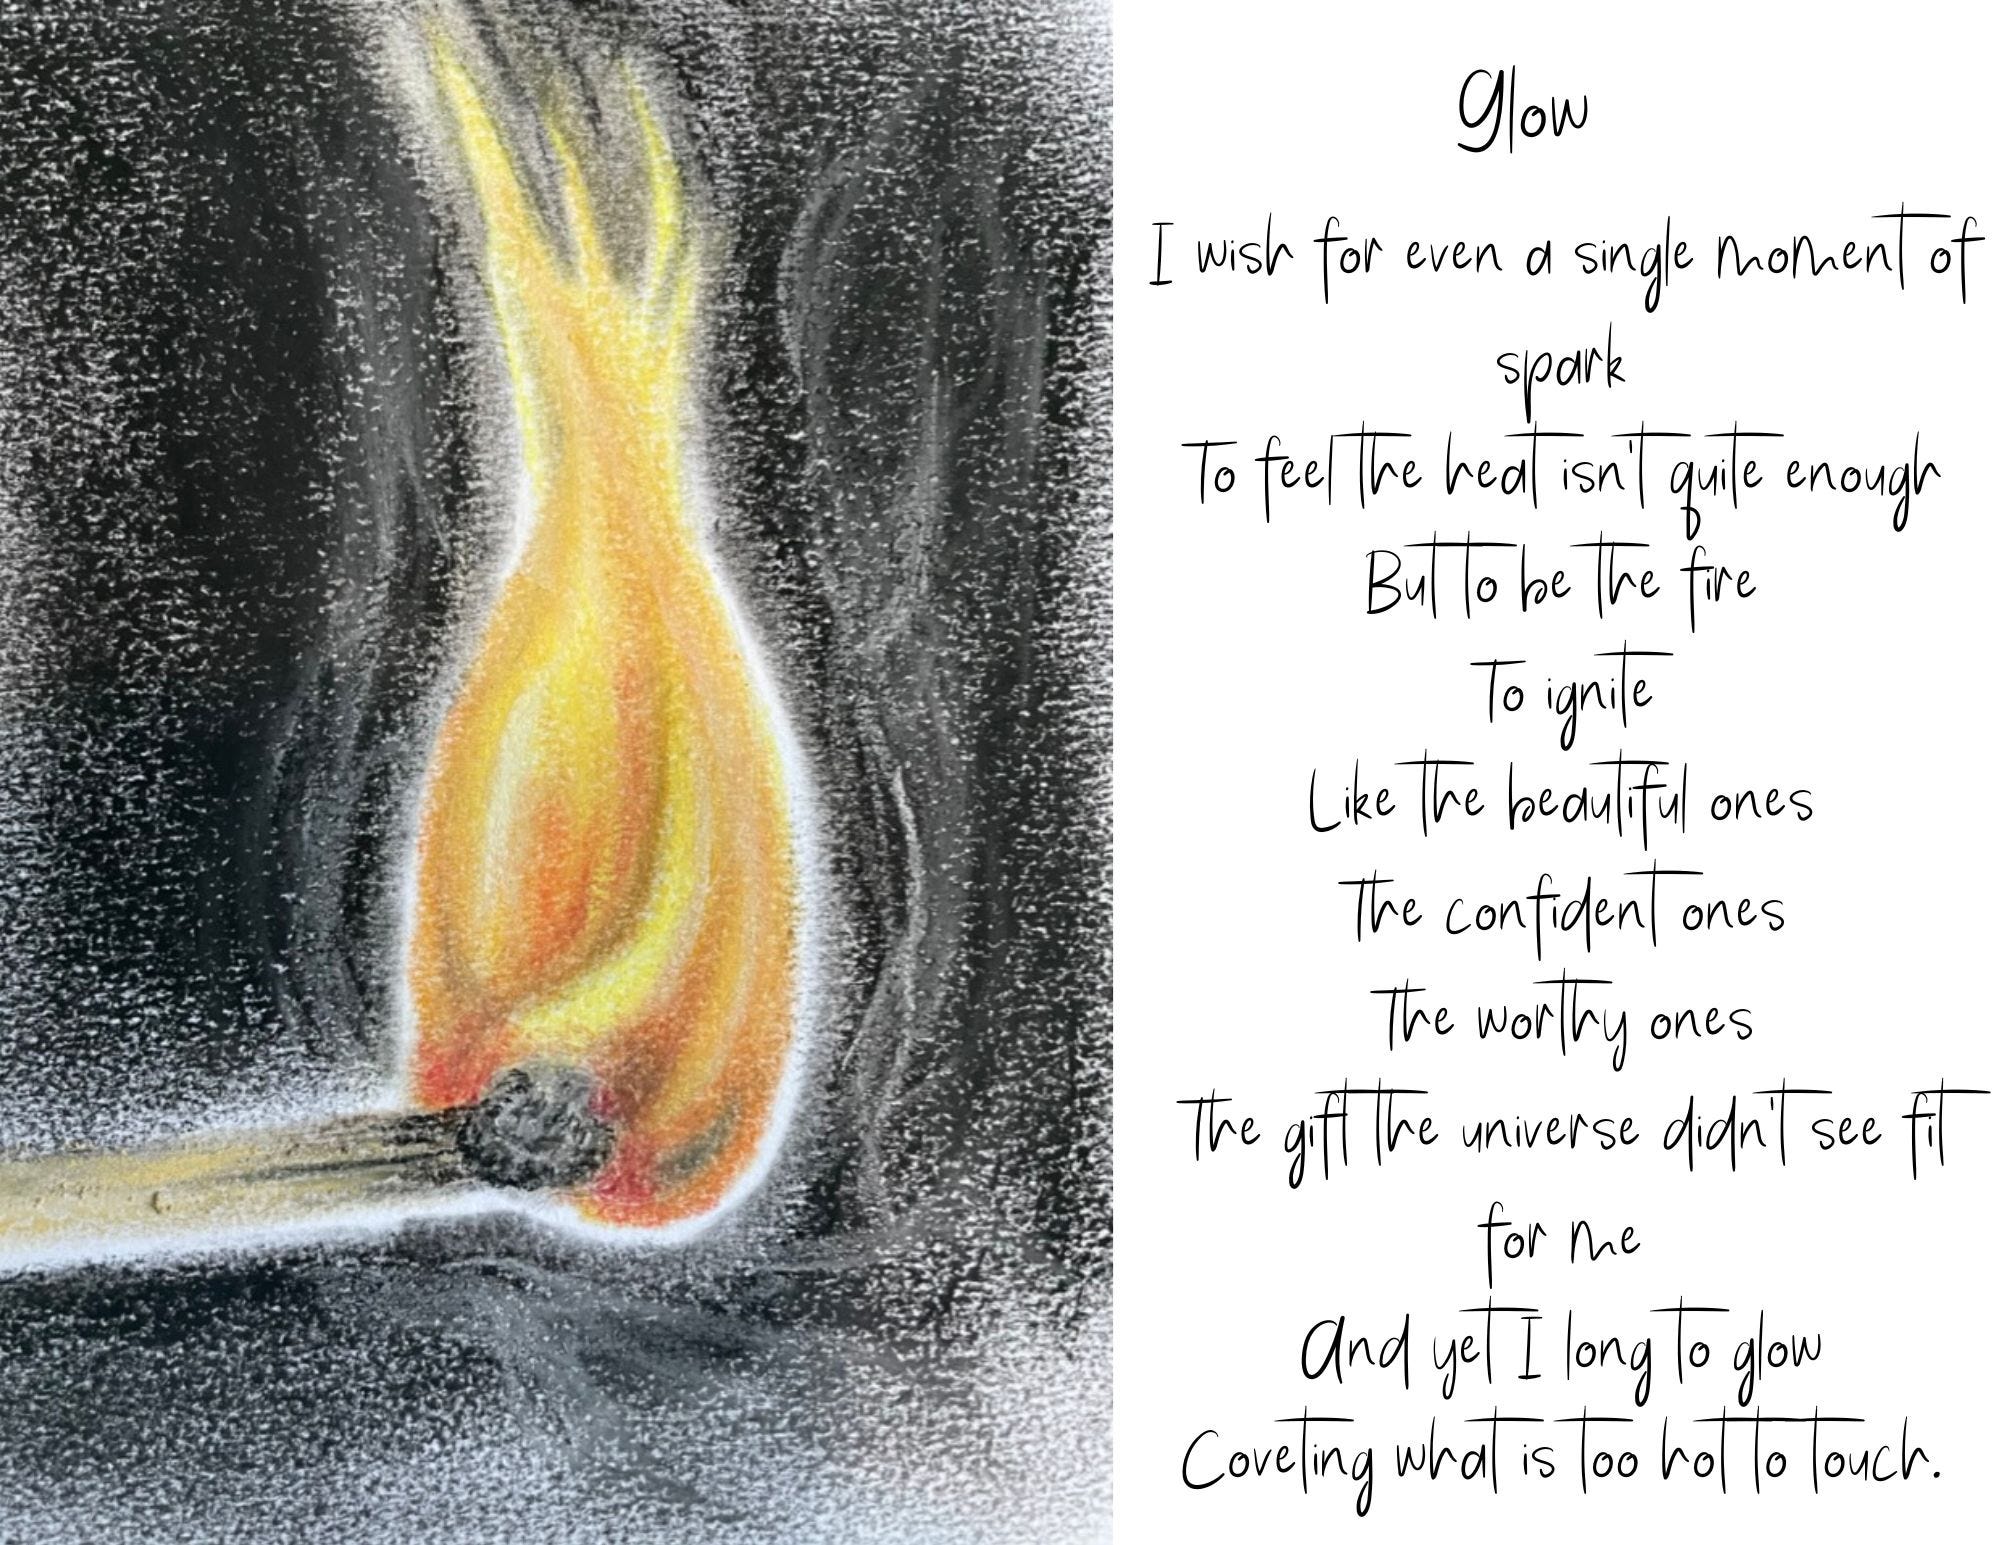 Glow
I wish for even a single moment of
spark
To feel the heat isn't quite enough
But to be the fire
To ignite
Like the beautiful ones
The confident ones
The worthy ones
The gift the universe didn't see fit
for me
And yet I long to glow
Coveting what is too hot to touch.